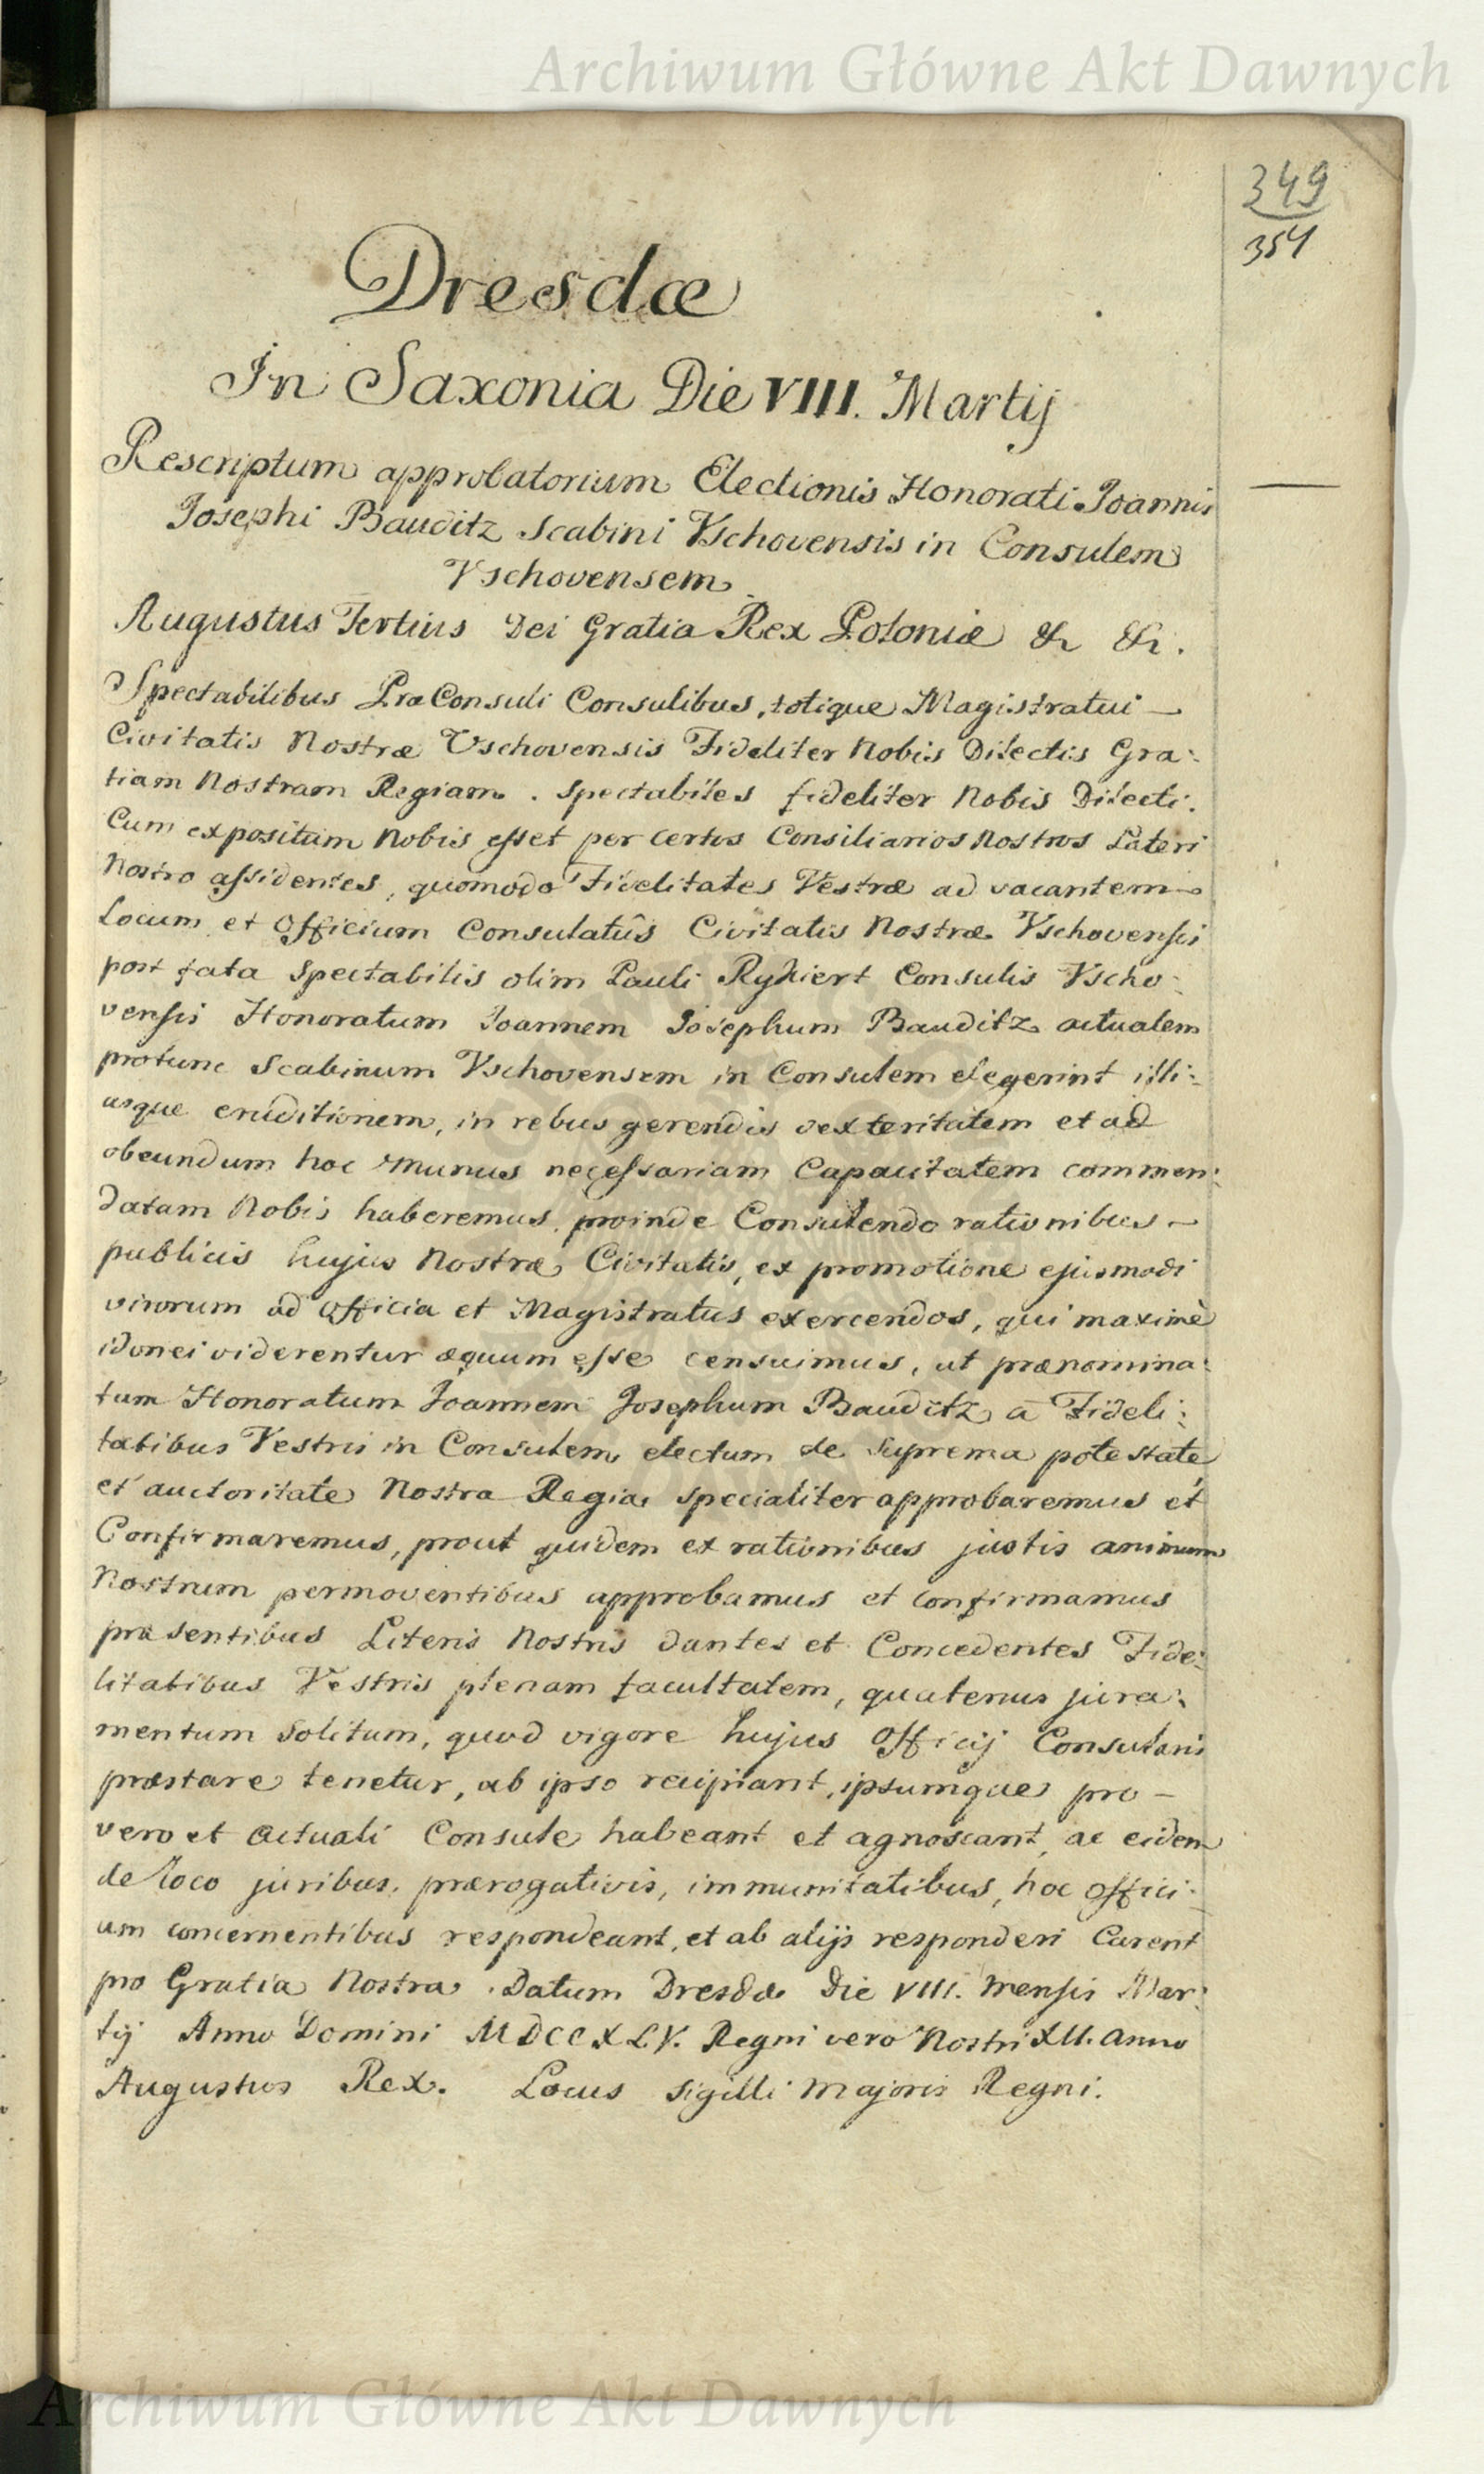 Archiwum Główne Akt Dawnych
349
354
Dresdæ
In Saxonia Die VIII. Martij
Rescriptum approbatorium Electionis Honorati Joannis
Josephi Bauditz Scabini Vschovensis in Consulem
Vschovensem
Augustus Tertius Dei Gratia Rex Poloniæ & &.
Spectabilibus PræConsuli Consulibus, totique Magistratui –
Civitatis Nostræ Vschovensis Fideliter Nobis Dilectis Gra:
tiam Nostram Regiam. Spectabiles fideliter Nobis Dilecti.
Cum expositum Nobis esset per certos Consiliarios Nostros Lateri
Nostro assidentes, quomodo Fidelitates Vestræ ad vacantem
Locum et Officium Consulatûs Civitatis Nostræ Vschovensis
post fata Spectabilis olim Pauli Rykiert Consulis Vscho:
vensis Honoratum Joannem Josephum Bauditz actualem
protunc Scabinum Vschovensem in Consulem elegerint illi:
usque eruditionem, in rebus gerendis dexteritatem et ad
obeundum hoc munus necessariam Capacitatem commen:
datam Nobis haberemus, proinde Consulendo rationibus –
publicis hujus Nostræ Civitatis, ex promotione ejusmodi
virorum ad Officia et Magistratus exercendos, qui maximè
idonei viderentur æquum esse censuimus, ut prænomina:
tum Honoratum Joannem Josephum Bauditz a Fideli:
tatibus Vestris in Consulem electum de Suprema potestate
et auctoritate Nostra Regia specialiter approbaremus et
Confirmaremus, prout quidem ex rationibus justis animum
Nostrum permoventibus approbamus et confirmamus
præsentibus Literis Nostris dantes et Concedentes Fide:
litatibus Vestris plenam facultatem, quatenus jura:
mentum solitum, quod vigore hujus Officij Consularis
præstare tenetur, ab ipso recipiant, ipsumque pro –
vero et actuali Consule habeant et agnoscant, ac eidem
de loco juribus, prærogativis, immunitatibus, hoc offici:
um concernentibus respondeant, et ab alijs responderi Curent
pro Gratia Nostra. Datum Dresdæ Die VIII. Mensis Mar:
tij Anno Domini MDCCXLV. Regni vero Nostri XII. anno
Augustus Rex. Locus Sigilli Majoris Regni.
Archiwum Główne Akt Dawnych